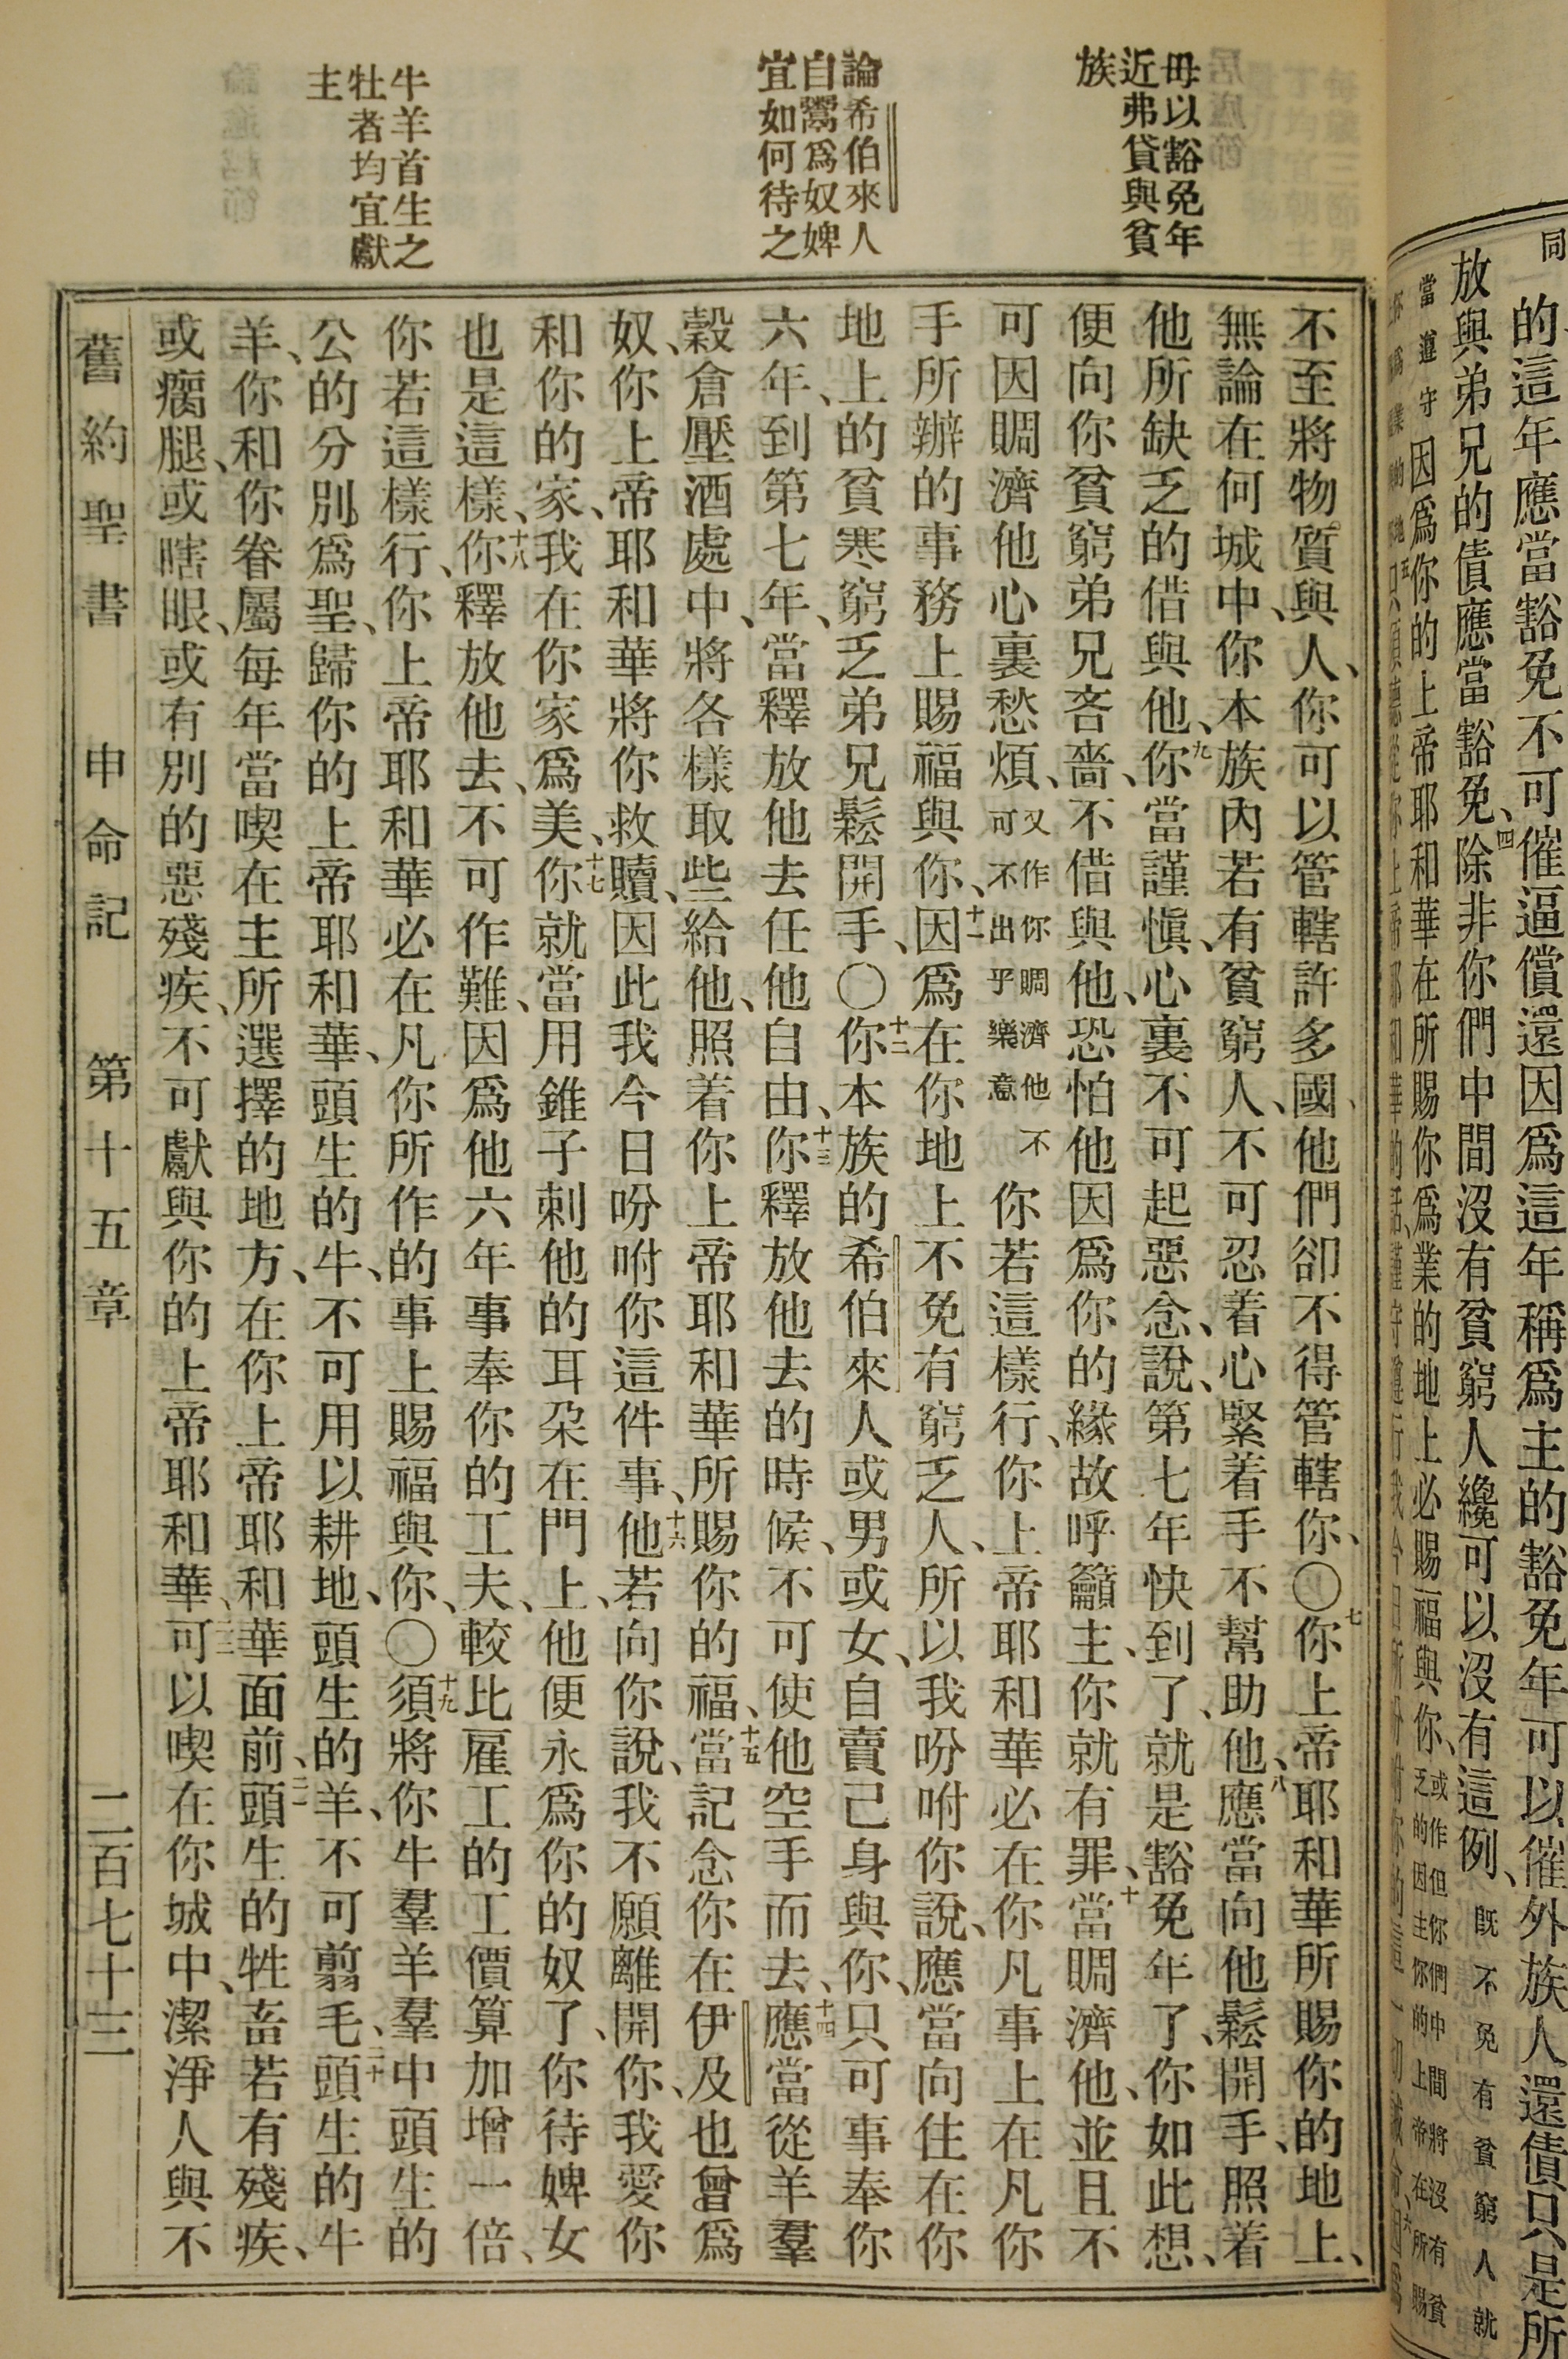 同
的這年應當豁免不可催逼償還因爲這年稱爲主的豁免年可以催外族人還債只是所
放與弟兄的債應當豁免、四除非你們中間沒有貧窮人纔可以沒有這例、旣不免有貧窮人就
當遵守因爲你的上帝耶和華在所賜你爲業的地上必賜福與你、或作但你們中間將沒有貧
乏的因主你的上帝在所賜
毋以豁免年
近弗貸與貧
族
論希伯來人
自鬻爲奴婢
宜如何待之
牛羊首生之
牡者均宜獻
主
不至將物質與人、你可以管轄許多國、他們卻不得管轄你、〇七你上帝耶和華所賜你的地上、
無論在何城中、你本族內若有貧窮人、不可忍着心緊着手不幫助他、八應當向他鬆開手、照着
他所缺乏的借與他、九你當謹愼、心裏不可起惡念、說、第七年快到了、就是豁免年了、你如此想、
便向你貧窮弟兄吝嗇、不借與他、恐怕他因爲你的緣故呼籲主、你就有罪、十當賙濟他、並且不
可因賙濟他心裏愁煩、又作你賙濟他不可不出乎樂意你若這樣行、你上帝耶和華必在你凡事上在凡你
手所辦的事務上賜福與你、十一因爲在你地上不免有窮乏人、所以我吩咐你說、應當向住在你
地上的貧寒窮乏弟兄鬆開手、〇十二你本族的希伯來人或男或女、自賣己身與你、只可事奉你
六年、到第七年、當釋放他去任他自由、十三你釋放他去的時候、不可使他空手而去、十四應當從羊羣
穀倉壓酒處中、將各樣取些給他、照着你上帝耶和華所賜你的福、十五當記念你在伊及也曾爲
奴、你上帝耶和華將你救贖、因此我今日吩咐你這件事、十六他若向你說、我不願離開你、我愛你
和你的家、我在你家爲美、十七你就當用錐子刺他的耳朶在門上、他便永爲你的奴了、你待婢女
也是這樣、十八你釋放他去、不可作難、因爲他六年事奉你的工夫、較比雇工的工價算加增一倍、
你若這樣行、你上帝耶和華必在凡你所作的事上賜福與你、〇十九須將你牛羣羊羣中頭生的
公的分別爲聖、歸你的上帝耶和華、頭生的牛、不可用以耕地、頭生的羊、不可翦毛、二十頭生的牛
羊、你和你眷屬每年當喫在主所選擇的地方、在你上帝耶和華面前、二一頭生的牲畜若有殘疾、
或瘸腿、或瞎眼、或有別的惡殘疾、不可獻與你的上帝耶和華、二二可以喫在你城中、潔淨人與不
舊約聖書 申命記 第十五章 二百七十三